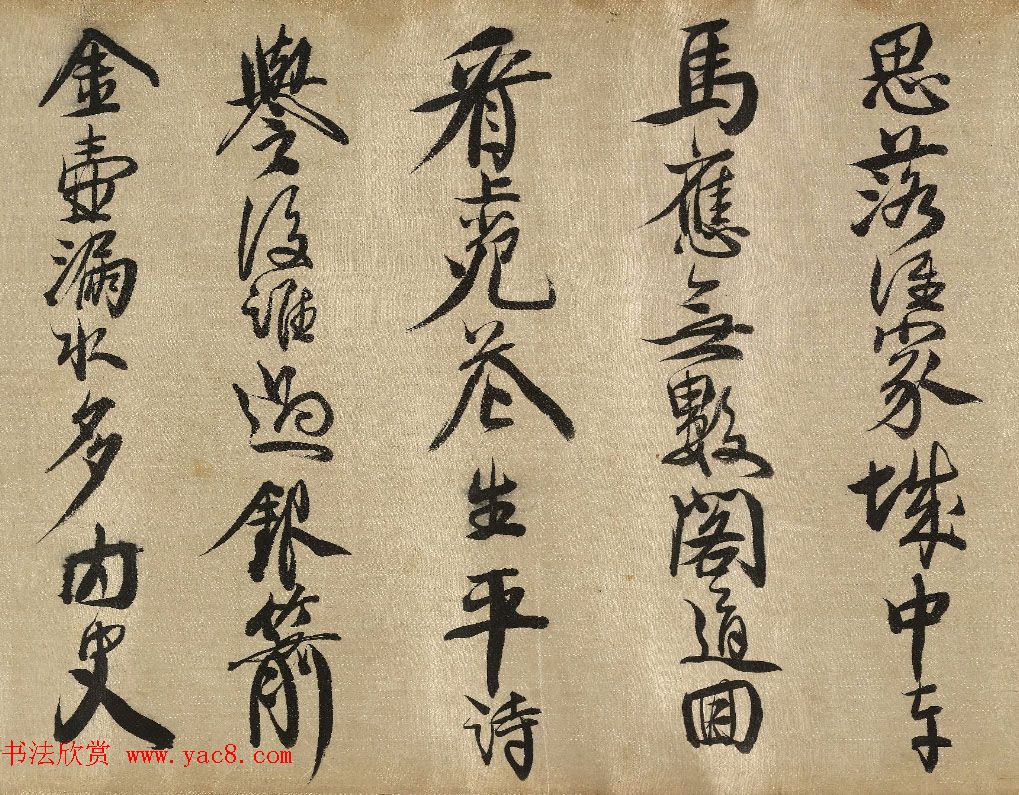 思落誰家城中車
馬應無數閣道回
看上苑花生平詩
譽誰過銀箭
金壺漏水多内史
书法欣赏 www.yac8.com